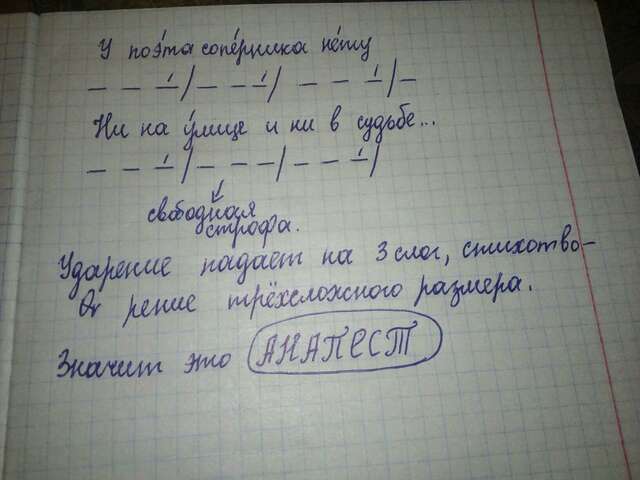 У поэ́та сопе́рника не́ту
_ _ _́/_ _ _́/ _ _ _́/_
Ни на у́лице и ни в судьбе...
_ _ _́/_ _ _/_ _ _́/
свободная
строфа.
Ударение падает на 3 слог, стихотво-
рение трёхсложного размера.
Значит это АНАПЕСТ